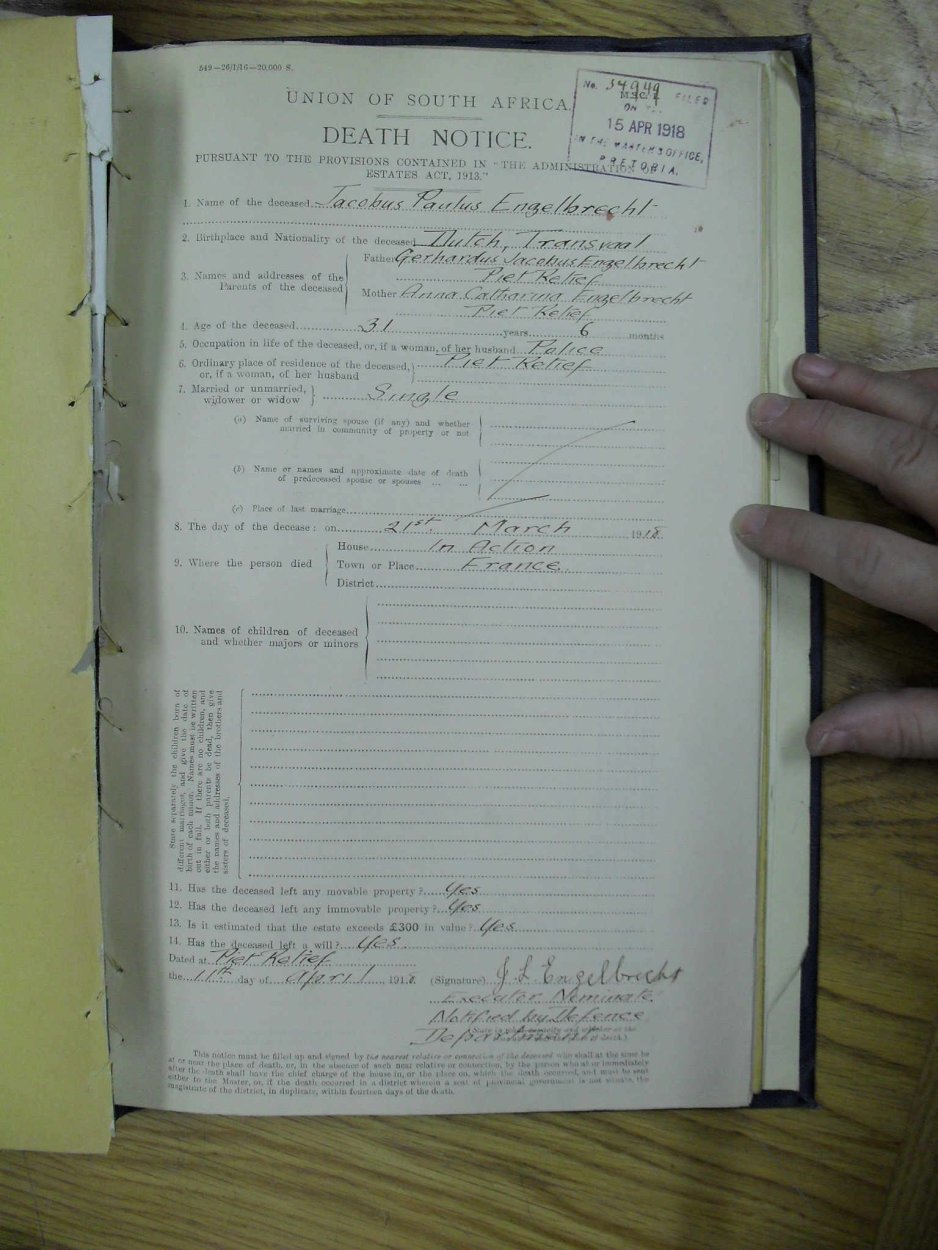 549—26/1/16—20,000 S.
UNION OF SOUTH AFRICA.
No. 34949
M.S.C. FILED
ON
15 APR 1918
IN THE MASTER'S OFFICE,
PRETORIA.
DEATH NOTICE.
PURSUANT TO THE PROVISIONS CONTAINED IN "THE ADMINISTRATION OF
ESTATES ACT, 1913."
1. Name of the deceased Jacobus Paulus Engelbrecht
2. Birthplace and Nationality of the deceased Dutch, Transvaal
3. Names and addresses of the Parents of the deceased
Father Gerhardus Jacobus Engelbrecht
Piet Relief
Mother Anna Catharina Engelbrecht
Piet Relief
4. Age of the deceased 31 years 6 months
5. Occupation in life of the deceased, or, if a woman, of her husband Police
6. Ordinary place of residence of the deceased, Piet Relief
or, if a woman, of her husband
7. Married or unmarried, Single
widower or widow
(a) Name of surviving spouse (if any) and whether
married in community of property or not
(b) Name or names and approximate date of death
of predeceased spouse or spouses ... ...
(c) Place of last marriage
8. The day of the decease: on 21st March 1918.
9. Where the person died
House In Action
Town or Place France.
District
10. Names of children of deceased
and whether majors or minors
State separately the children born of
different marriages, and give the date of
birth of each minor. Names must be written
out in full. If there are no children, and
either or both parents be dead, then give
the names and addresses of the brothers and
sisters of deceased.
11. Has the deceased left any movable property? Yes
12. Has the deceased left any immovable property? Yes
13. Is it estimated that the estate exceeds £300 in value? Yes
14. Has the deceased left a will? Yes
Dated at Piet Relief
the 11th day of April 1918. (Signature) J L Engelbrecht
Executor Nominate.
Notified by Defence
Department
This notice must be filled up and signed by the nearest relative or connection of the deceased who shall at the time be
at or near the place of death, or, in the absence of such near relative or connection, by the person who at or immediately
after the death shall have the chief charge of the house in, or the place on, which the death occurred, and must be sent
either to the Master, or, if the death occurred in a district wherein a seat of provincial government is not situate, the
magistrate of the district, in duplicate, within fourteen days of the death.